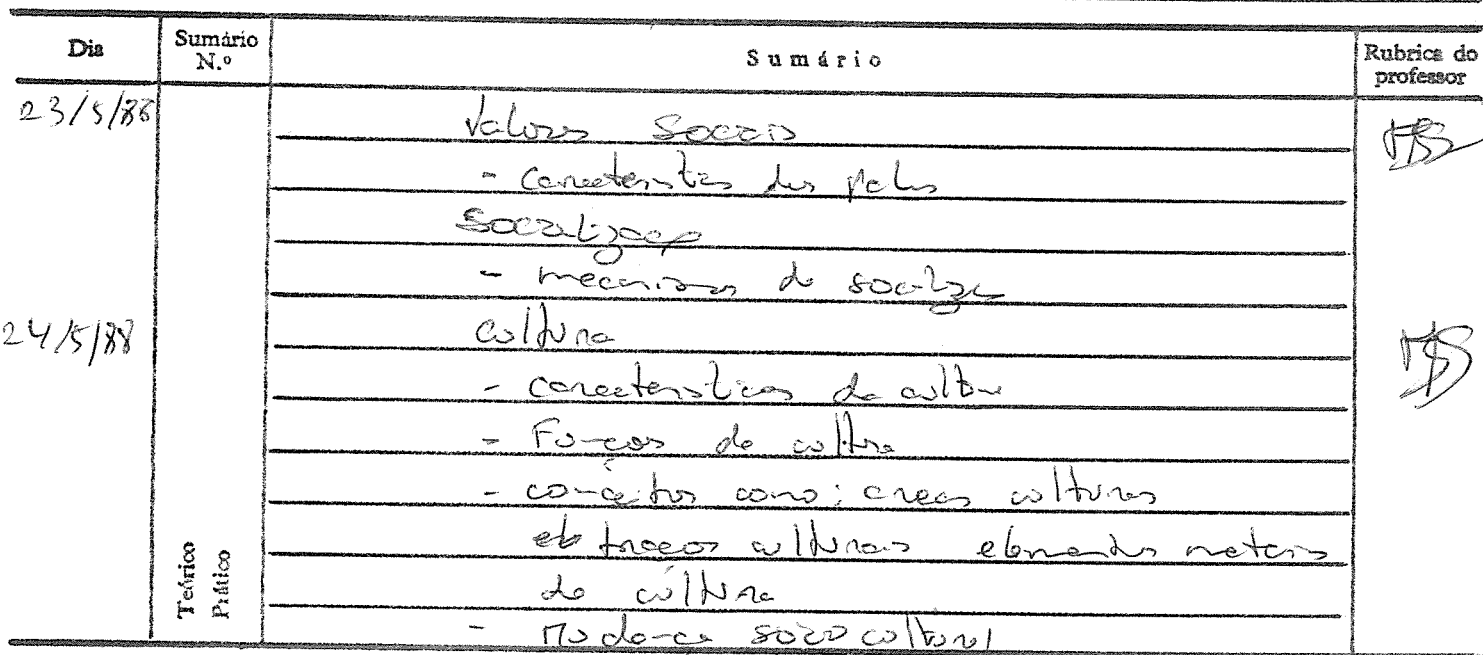 Dia
Sumário N.º
Sumário
Rubrica do professor
23/5/88
Valores Sociais
- Características dos
Socialização
- mecanismos de
24/5/88
Cultura
- características da cultura
- Funções da cultura
- conceitos como: áreas culturais
traços culturais elementos materiais
da cultura
- Mudança socio cultural
Teórico
Prático